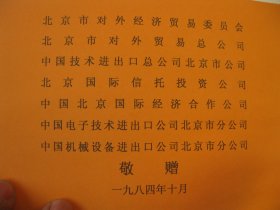 北京市对外经济贸易委员会
北京市对外贸易总公司
中国技术进出口总公司北京市公司
北京国际信托投资公司
中国北京国际经济合作公司
中国电子技术进出口公司北京市分公司
中国机械设备进出口公司北京市分公司
敬赠
一九八四年十月